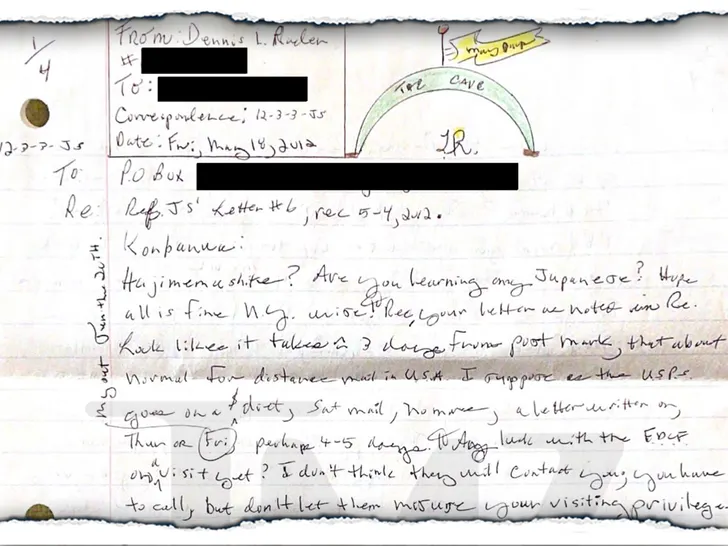 1/4
From: Dennis L. Rader
#
To:
Correspondence; 12-3-3-JS
Date: Fri, May 18, 2012
THE CAVE
12-3-3-JS
To: P.O Box
Re: Ref. JS' Letter #6, rec 5-4, 2012.
Konbanwa:
Hajimemashite? Are you learning any Japanese? Hope
all is fine N.Y. wise? Rec, your letter as noted in Re.
Look likes it takes 3 days from post mark, that about
normal for distance mail in USA I suppose as the USPS.
goes on a diet, Sat mail, no more, a letter written on
Thur or Fri, perhaps 4-5 days. Any luck with the EDCF
on a visit yet? I don't think they will contact you, you have
to call, but don't let them misuse your visiting privileges
TMZ